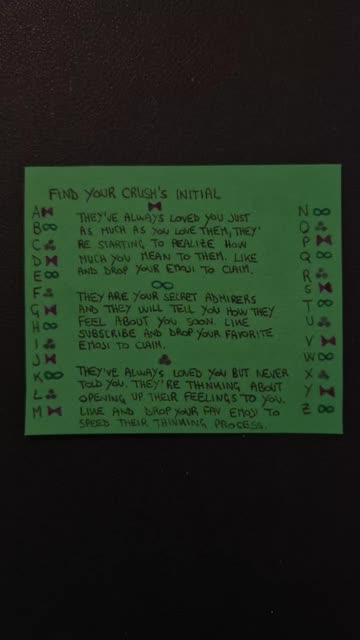 FIND YOUR CRUSH'S INITIAL
A
B
C
D
E
F
G
H
I
J
K
L
M
THEY'VE ALWAYS LOVED YOU JUST
AS MUCH AS YOU LOVE THEM, THEY'
RE STARTING TO REALIZE HOW
MUCH YOU MEAN TO THEM. LIKE
AND DROP YOUR EMOJI TO CLAIM.
THEY ARE YOUR SECRET ADMIRERS
AND THEY WILL TELL YOU HOW THEY
FEEL ABOUT YOU SOON. LIKE
SUBSCRIBE AND DROP YOUR FAVORITE
EMOJI TO CLAIM.
THEY'VE ALWAYS LOVED YOU BUT NEVER
TOLD YOU. THEY'RE THINKING ABOUT
OPENING UP THEIR FEELINGS TO YOU.
LIKE AND DROP YOUR FAV EMOJI TO
SPEED THEIR THINKING PROCESS.
N
O
P
Q
R
S
T
U
V
W
X
Y
Z